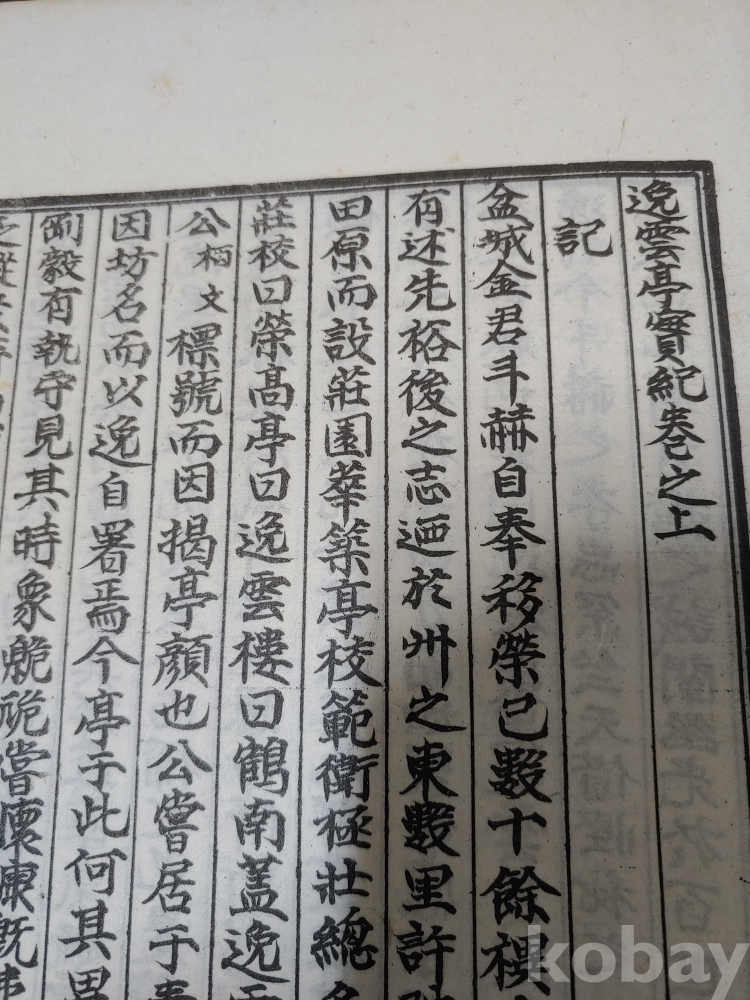 逸雲亭實紀卷之上
記
盆城金君斗赫自奉移榮已數十餘禩
有述先裕後之志迺於州之東數里許
田原而設莊園莘築亭校範衛極壯總
莊校曰榮高亭曰逸雲樓曰鶴南蓋逸
公柄文標號而因揭亭顔也公嘗居于
因坊名而以逸自署焉今亭于此何其異
剛毅有執守見其時象脆硊嘗懷慷慨
kobay